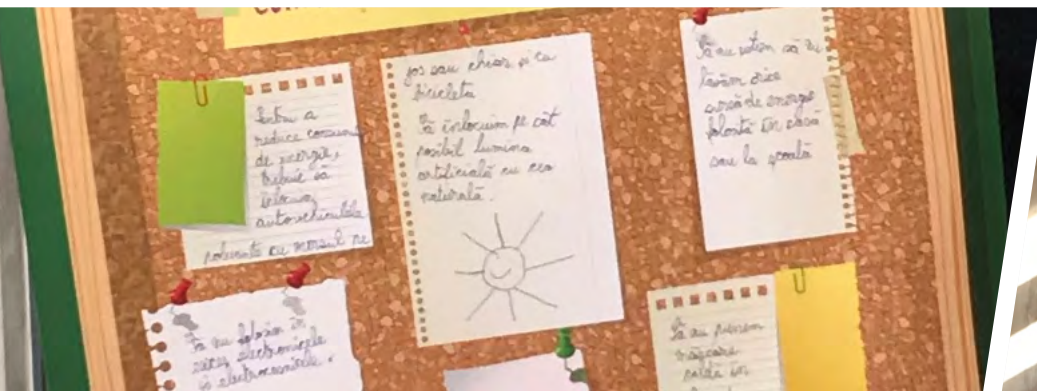 Pentru a
reduce consumul
de energie,
trebuie să
înlocuim
autovehiculele
poluante cu mersul pe
jos sau chiar și cu
bicicleta
Să înlocuim pe cât
posibil lumina
artificială cu cea
naturală.
Să nu uităm să nu
lăsăm orice
sursă de energie
folosită în casă
sau la școală
Să nu folosim în
exces electronicele
și electrocasnicele.
Să nu punem